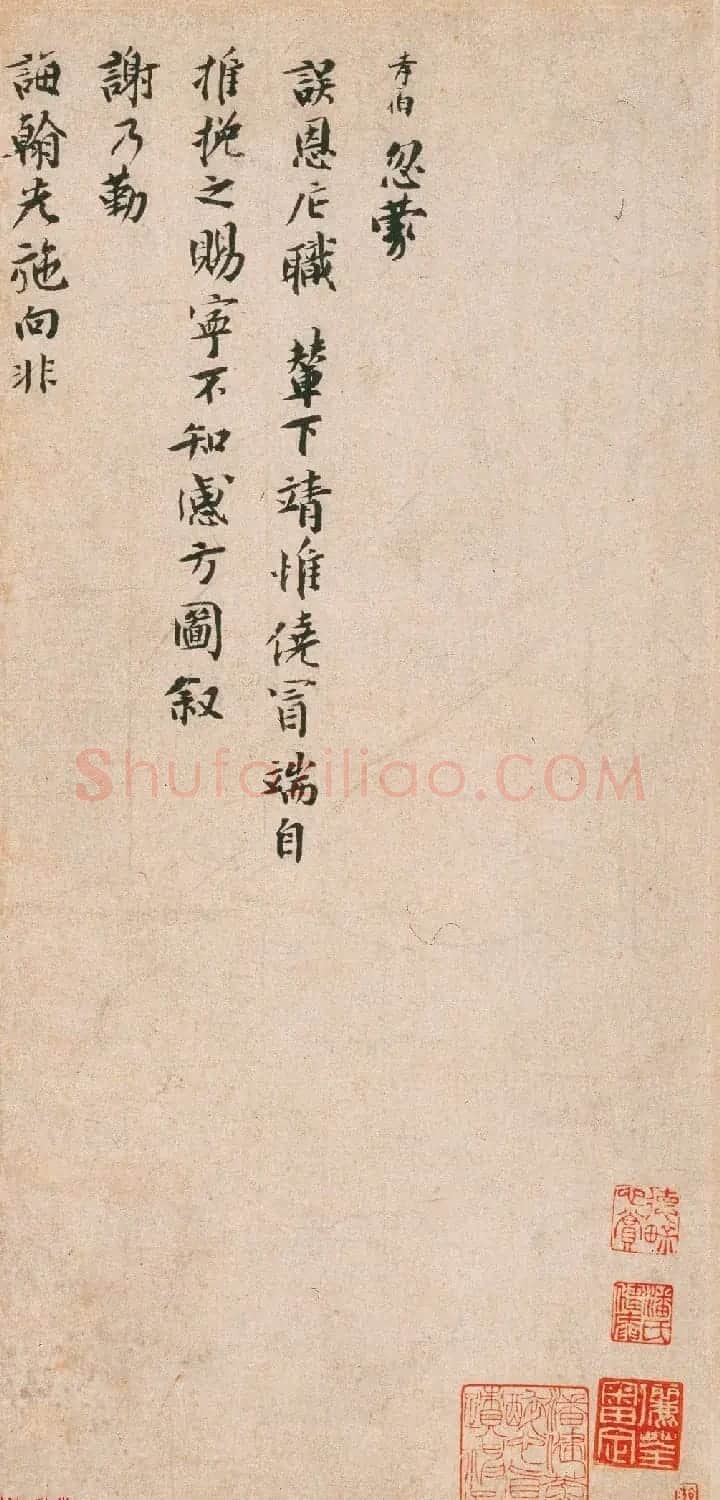 孝伯忽蒙
誤恩庀職 輦下靖惟僥冒端自
推挽之賜寧不知感方圖叙
謝乃勤
誨翰先施向非
Shufaziliao.COM